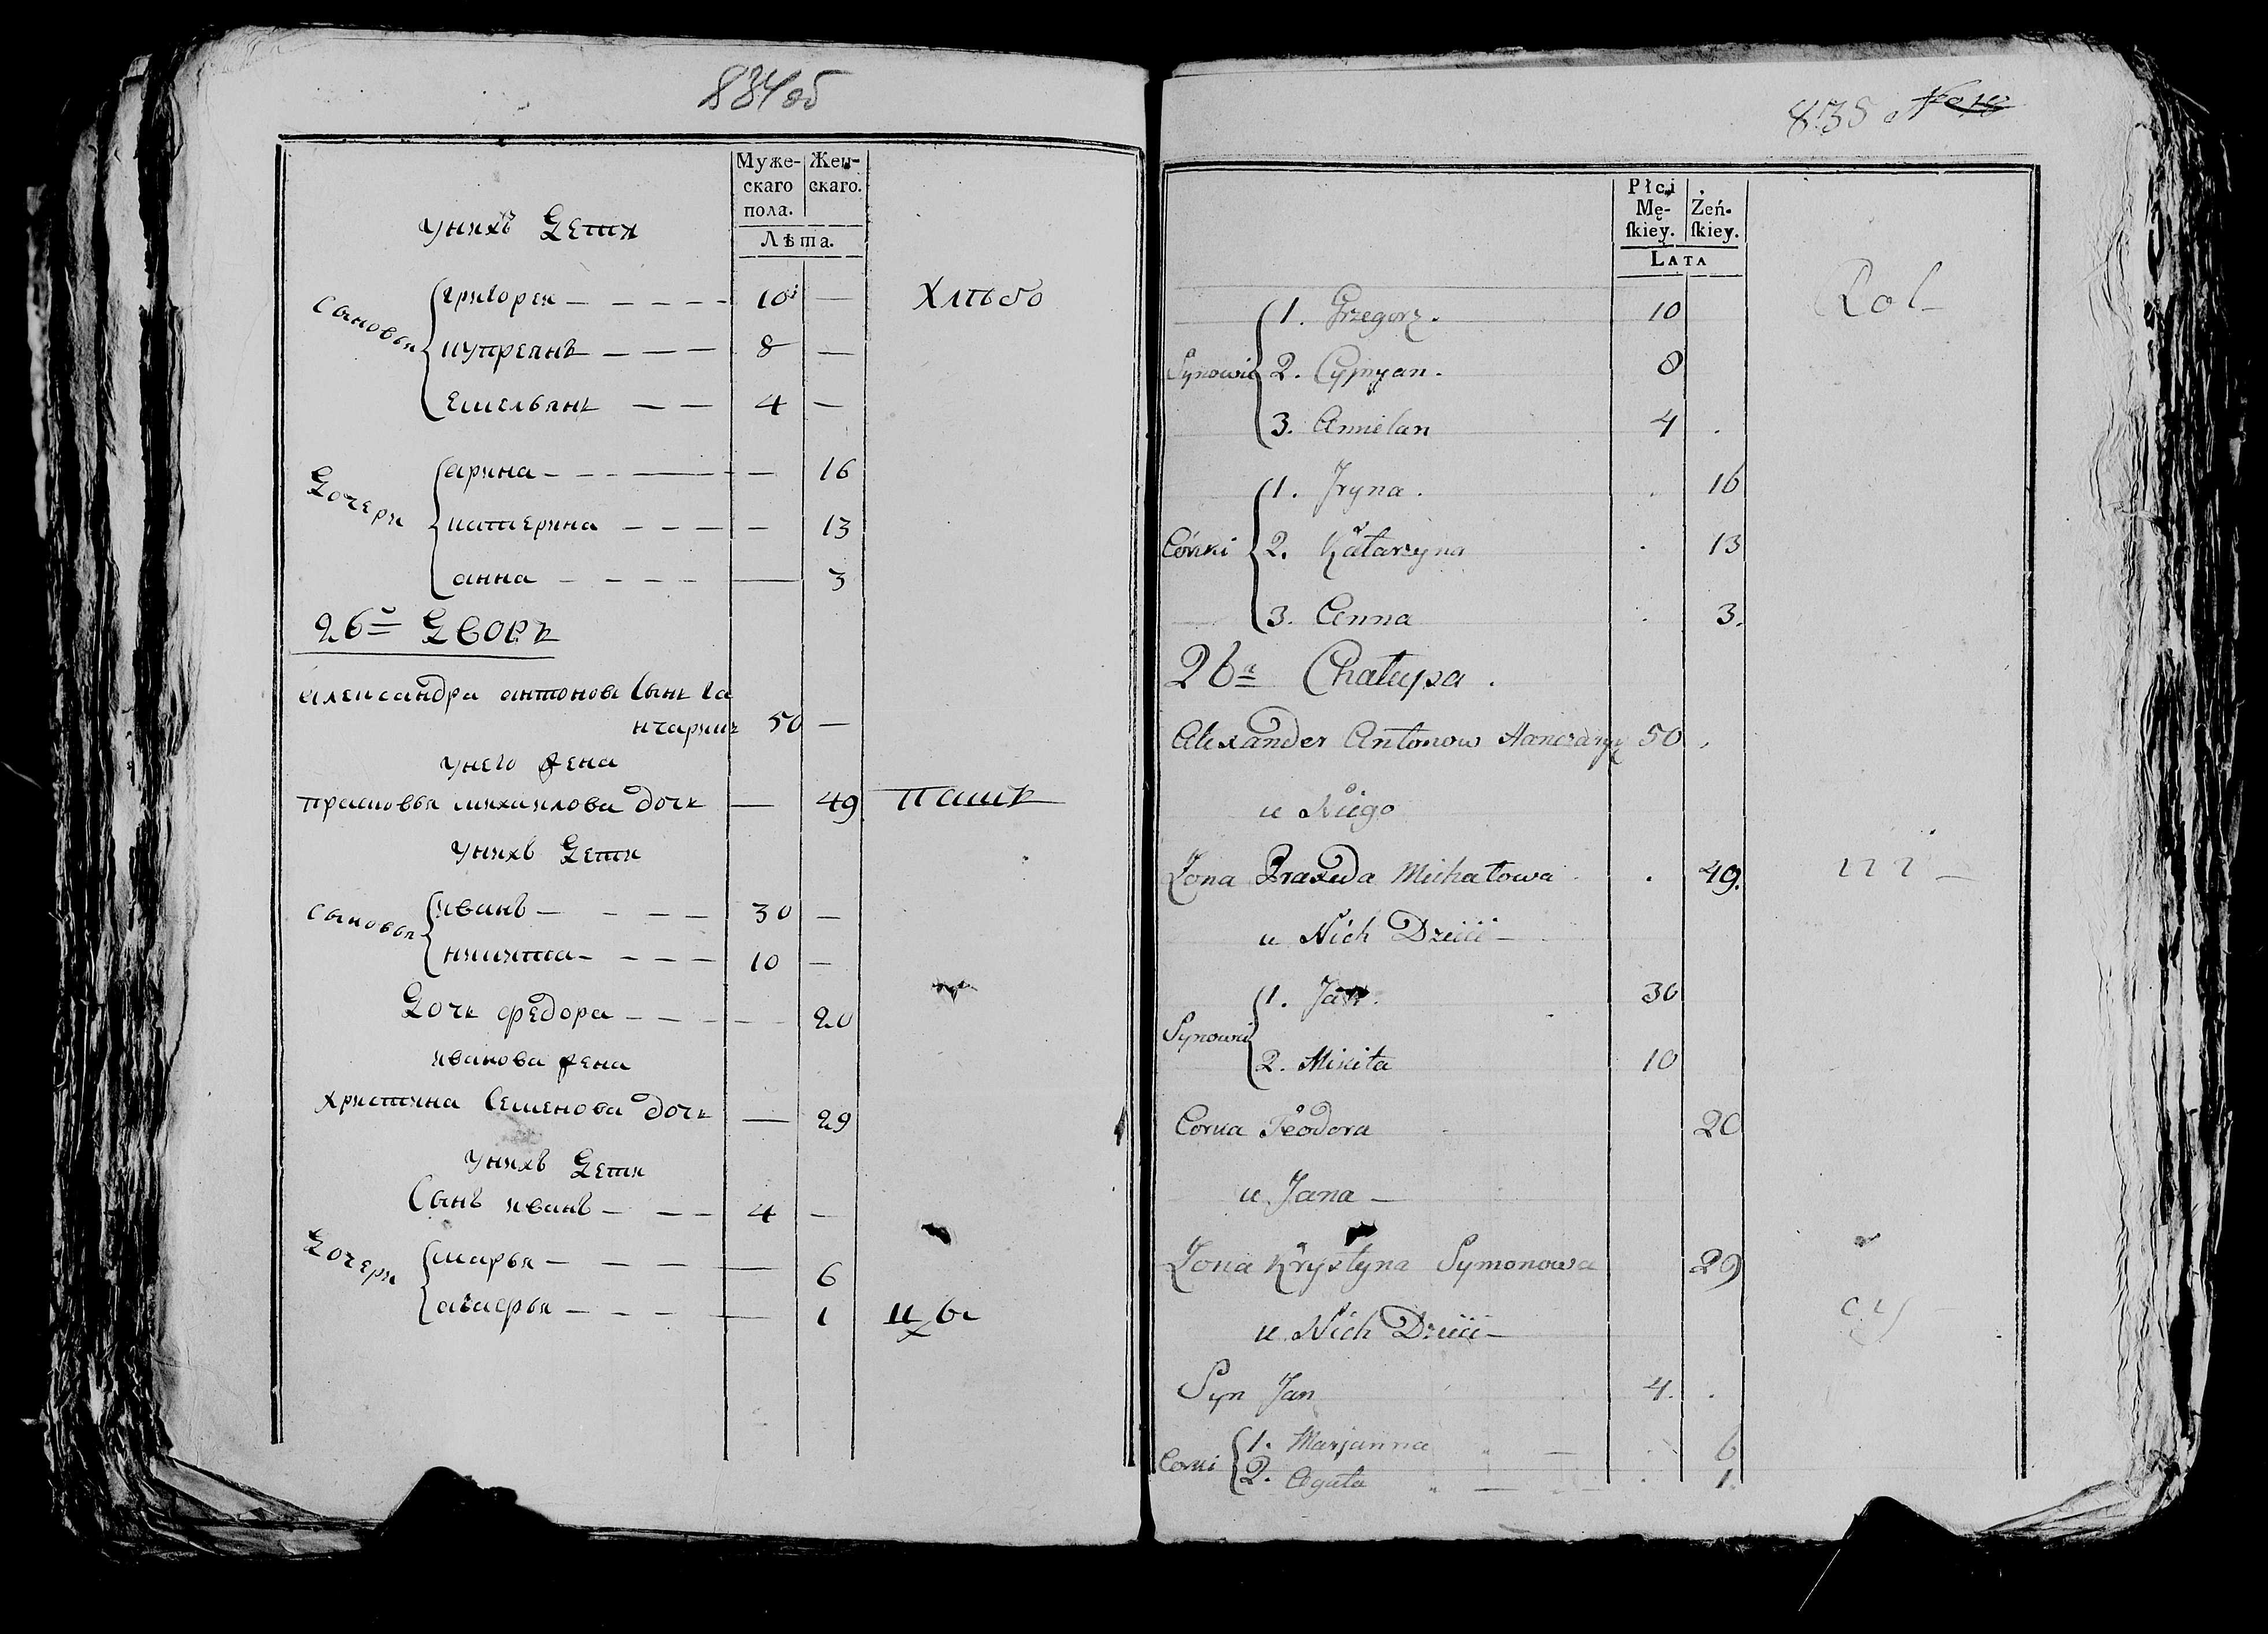 834 об
Муже-
скаго
пола.
Жен-
скаго.
Лѣта.
у нихъ Дети
Сыновья
григорей — 10 — Хлѣбо
купреянъ — 8 —
Емельянъ — 4 —
Дочери
арина — 16
катерина — 13
анна — 3
26й Дворъ
александра антоновъ Сынъ га
нчарикъ 50 —
у него жена
прасковья михаилова дочь — 49 паш
у нихъ Дети
Сыновья
иванъ — 30 —
никита — 10 —
Дочь федора — 20
иванова жена
христина Семенова дочь — 29
у нихъ Дети
Сынъ иванъ — 4 —
Дочери
марья — 6
агафья — 1 цы
835
Płci
Mę-
skiey.
Żeń-
skiey.
Lata
Synowie
1. Grzegorz. 10 Rol-
2. Cypryan. 8
3. Amielan 4 .
Córki
1. Jryna. . 16
2. Katarzyna . 13
3. Anna . 3.
26a Chałupa.
Alexander Antonow Hanczaryk 50 .
u Niego
Żona Praxeda Michałowa . 49. ni-
u Nich Dzieci -
Synowie
1. Jan. 30
2. Mikita 10
Corka Teodora 20
u Jana -
Żona Krystyna Symonowa 29
u Nich Dzieci - cy
Syn Jan 4. .
Corki
1. Marjanna . 6
2. Agata . 1.